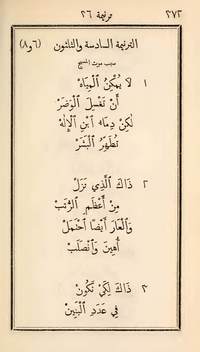 ٢٧٢ ترنيمة ٣٦
الترنيمة السادسة والثلثون (٦ و ٨)
سبب موت المسيح
١ لَا يُمْكِنُ ٱلْمِيَاهْ
أَنْ تَغْسِلَ ٱلْوَضَرْ
لٰكِنْ دِمَاءُ ٱبْنِ ٱلْإِلٰهْ
تُطَهِّرُ ٱلْبَشَرْ
٢ ذَاكَ ٱلَّذِي نَزَلْ
مِنْ أَعْظَمِ ٱلرُّتَبْ
وَٱلْعَارَ أَيْضًا ٱحْتَمَلْ
أُهِينَ وَٱنْصَلَبْ
٣ ذَاكَ لِكَيْ نَكُونْ
فِي عَدَدِ ٱلْبَنِينْ